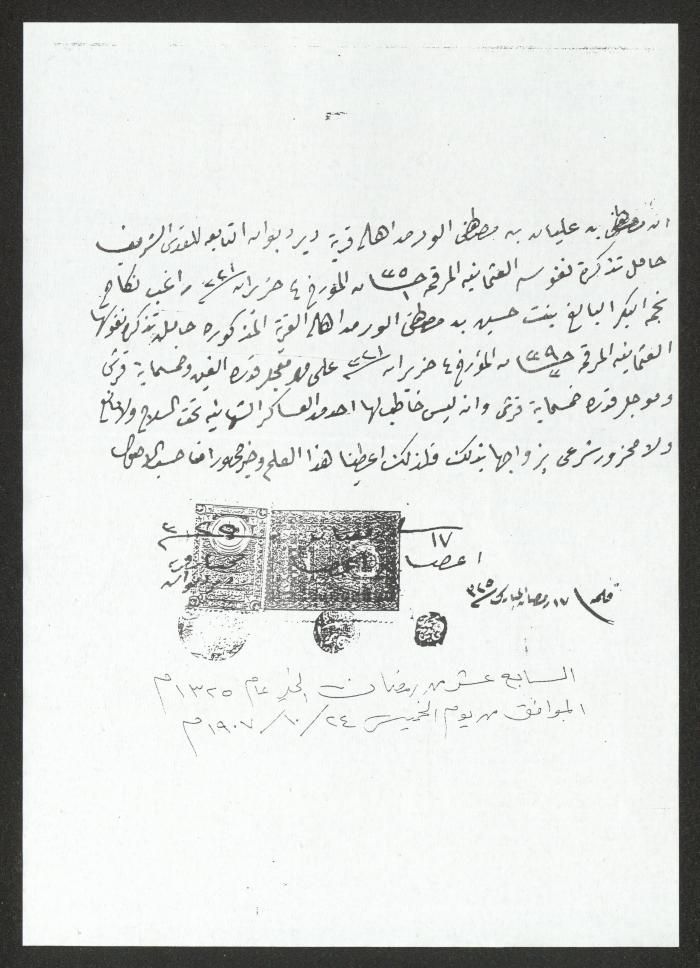 ان مصطفى بن عليان بن مصطفى الور من اهالي قرية دير ديوان التابعه للقدس الشريف
حامل تذكرة نفوسه العثمانيه المرقمه المؤرخ ٤ حزيران ٣٢١ راغب نكاح
نجمه البكر البالغ بنت حسين بن مصطفى الور من اهالي القرية المذكوره حامله تذكرة نفوسها
العثمانيه المرقمه المؤرخ ٤ حزيران ٣٢١ على مهر معجل قدره الفين وخمسماية قرش
وموجل قدره خمسماية قرش وانه ليس خاطب لها احد من العساكر الشاهانيه تحت السلاح ولا مانع
ولا محزور شرعي بزواجها بذلك فلذلك اعطينا هذا العلم وخبر حسب الاصول
١٧
اعضا
١٧ رمضان المبارك ٣٢٥
السابع عشر من رمضان الخير عام ١٣٢٥م
الموافق من يوم الخميس ٢٤/١٠/١٩٠٧م